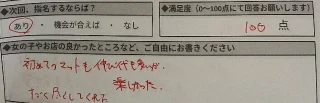 ◆次回、指名するならば? ◆満足度(0~100点にて回答お願いします)
あり・機会が合えば・なし 100 点
◆女の子やお店の良かったところなど、ご自由にお書きください
初めてのマットも
楽しかった。
してくれた